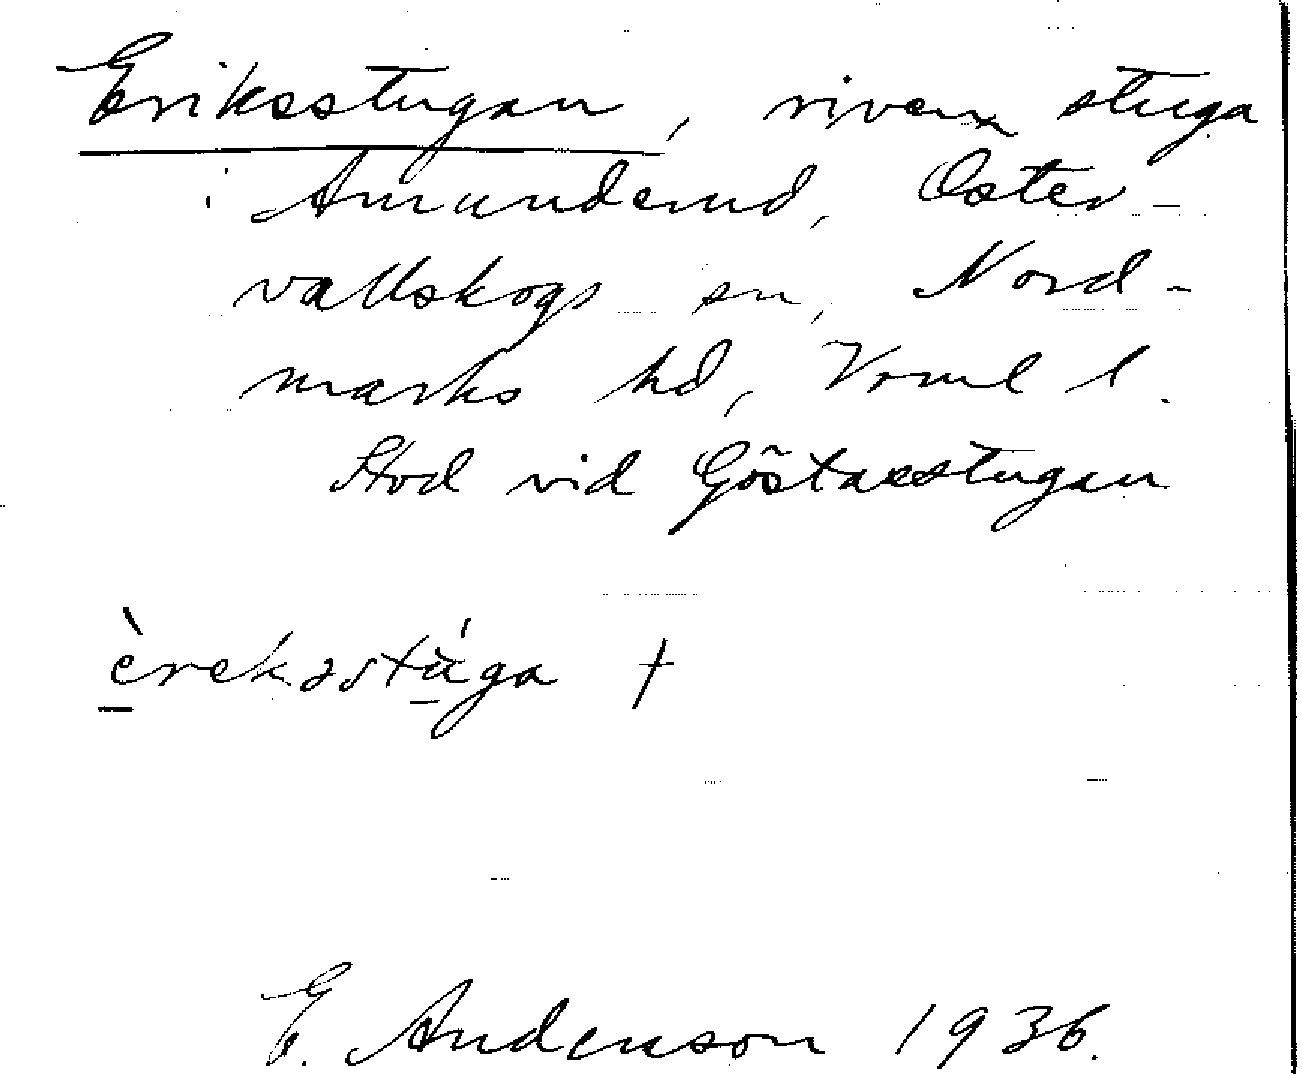 Eriksstugan, riven stuga
i Amunderud, Öster-
vallskogs sn, Nord-
marks hd, Vrml l.
Stod vid Göstasstugan
èrekəstúga †
E. Anderson 1936.